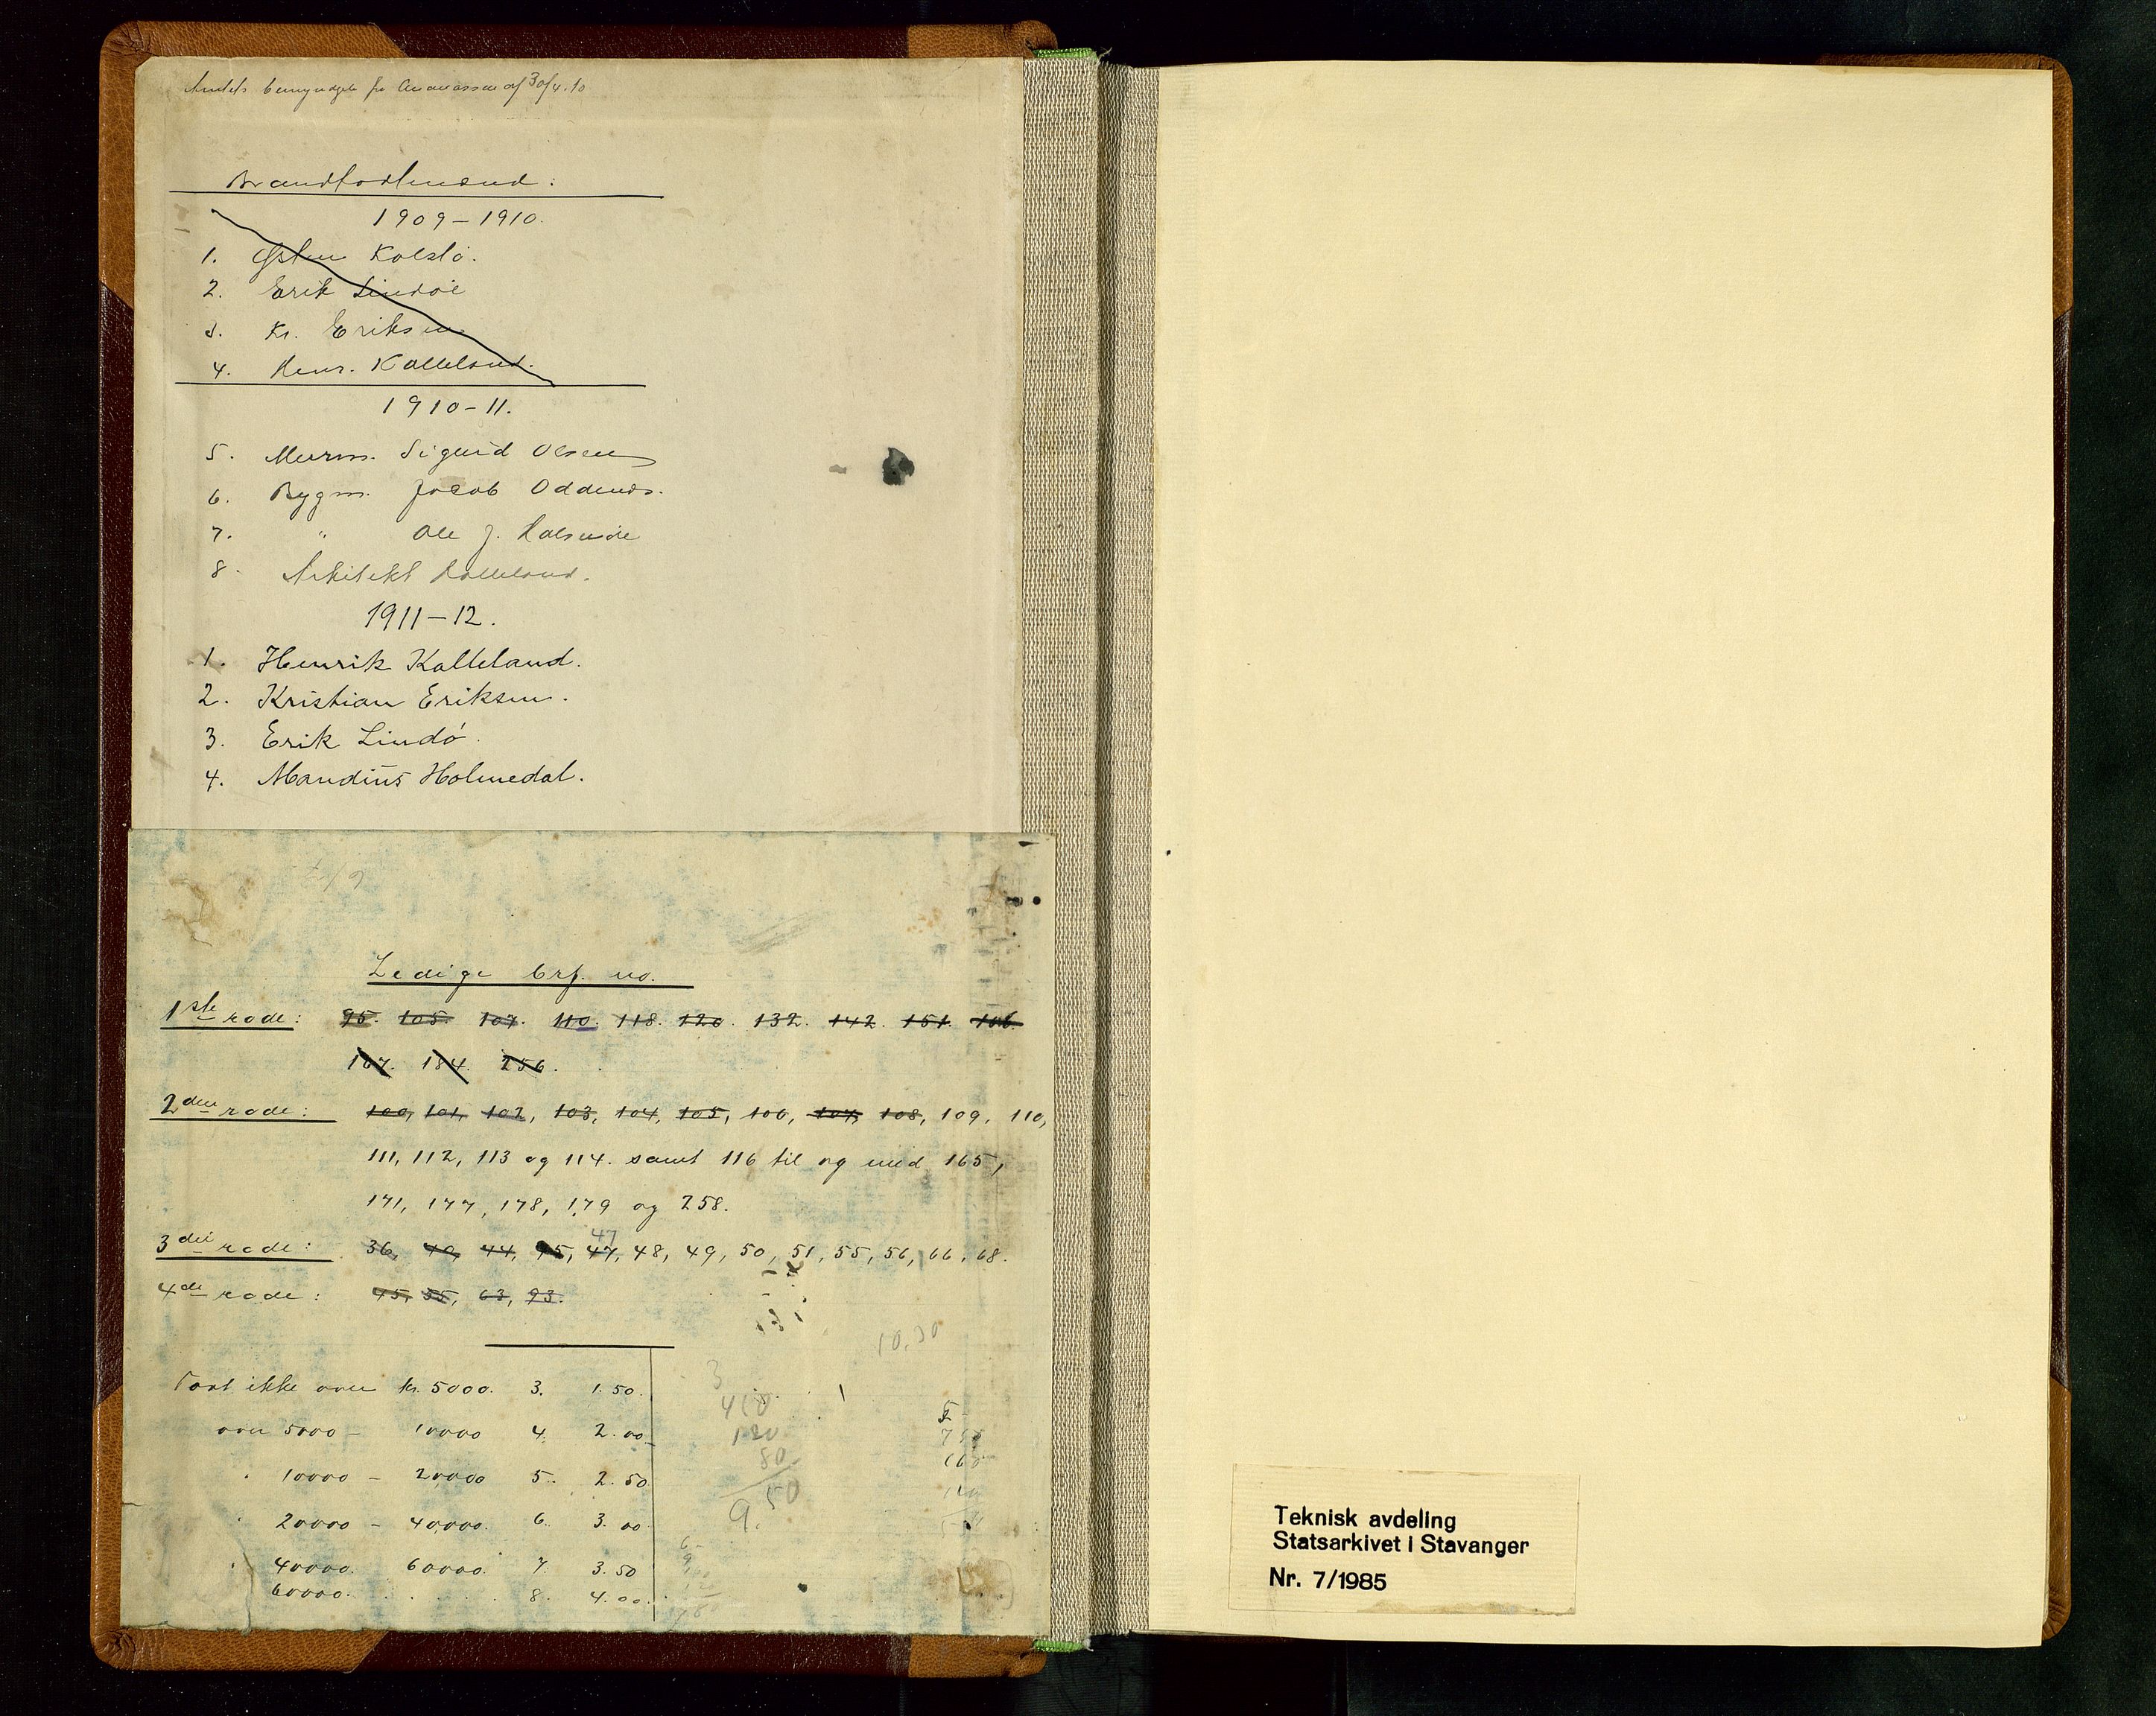 Brandtaxtmænd:
1909-1910.
1. Østen Kolstø.
2. Erik Lindöe
3. Kr. Eriksen
4. Henr. Kalleland.
1910-11.
5. Murm. Sigurd Olsen
6. Bygm. Jacob Odden
7. " Ole J.
8. Arkitekt Kalleland.
1911-12.
1. Henrik Kalleland.
2. Kristian Eriksen.
3. Erik Lindö.
4. Mandius Holmedal.
Ledige brf. no.
1ste rode: 95. 105. 107. 110. 118. 120. 132. 142. 151. 166.
167. 184. 256.
2den rode: 100, 101, 102, 103, 104, 105, 106, 107, 108, 109, 110,
111, 112, 113 og 114. samt 116 til og med 165,
171, 177, 178, 179 og 258.
47
3die rode: 36, 40, 44, 45, 47, 48, 49, 50, 51, 55, 56, 66, 68.
4de rode: 45, 55, 63, 93.
10.30
Taxt ikke over kr. 5000. 3. 1.50.
over 5000 - 10000 4. 2.00
" 10000 - 20000 5. 2.50
" 20000 - 40000. 6. 3.00
" 40000. 60000. 7. 3.50
60000. 8. 4.00.
3
410
120
80
9.50
Teknisk avdeling
Statsarkivet i Stavanger
Nr. 7/1985